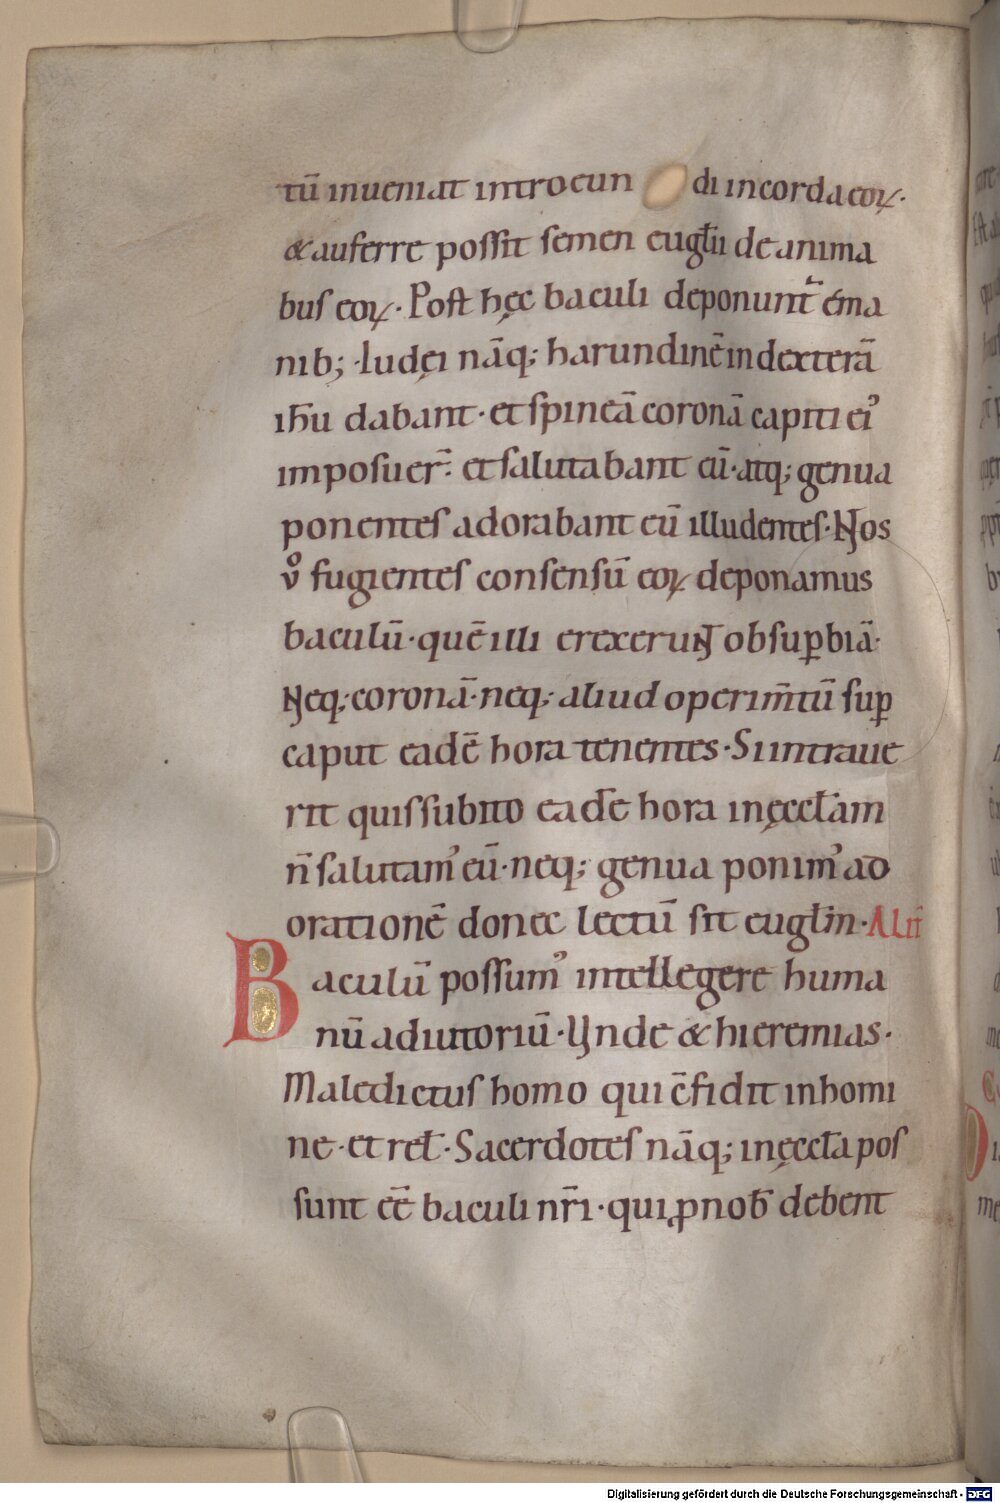 tū inueniat introeun di in corda eoꝝ·
& auferre possit semen eugłii de anima
bus eoꝝ· Post hęc baculi deponunt̃ éma
nib; ·Iudęi nāq; harundinē in dexterā
ih̄u dabant· et spineā coronā capiti ei᾿
imposuer̄· et salutabant eū· atq; genua
ponentes adorabant eū illudentes· Nos
v̊ fugientes consensū eoꝝ deponamus
baculū· quē illi erexerunt ob suꝑbiā·
Neq; coronā· neq; aliud operim̄tū suꝑ
caput eadē hora tenentes· Si intraue
rit quis subito eadē hora in ęccłam
n̄ salutam᾿ eū· neq; genua ponim᾿ ad
orationē donec lectū sit eugłin· Alit̄
Baculū possum᾿ intellegere huma
nū adiutoriū· Unde & hieremias·
Maledictus homo qui c̄fidit in homi
ne· et reł· Sacerdotes nāq; in ęccła pos
sunt eē baculi nr̄i· qui ꝓ nob̄ debent
Digitalisierung gefördert durch die Deutsche Forschungsgemeinschaft - DFG